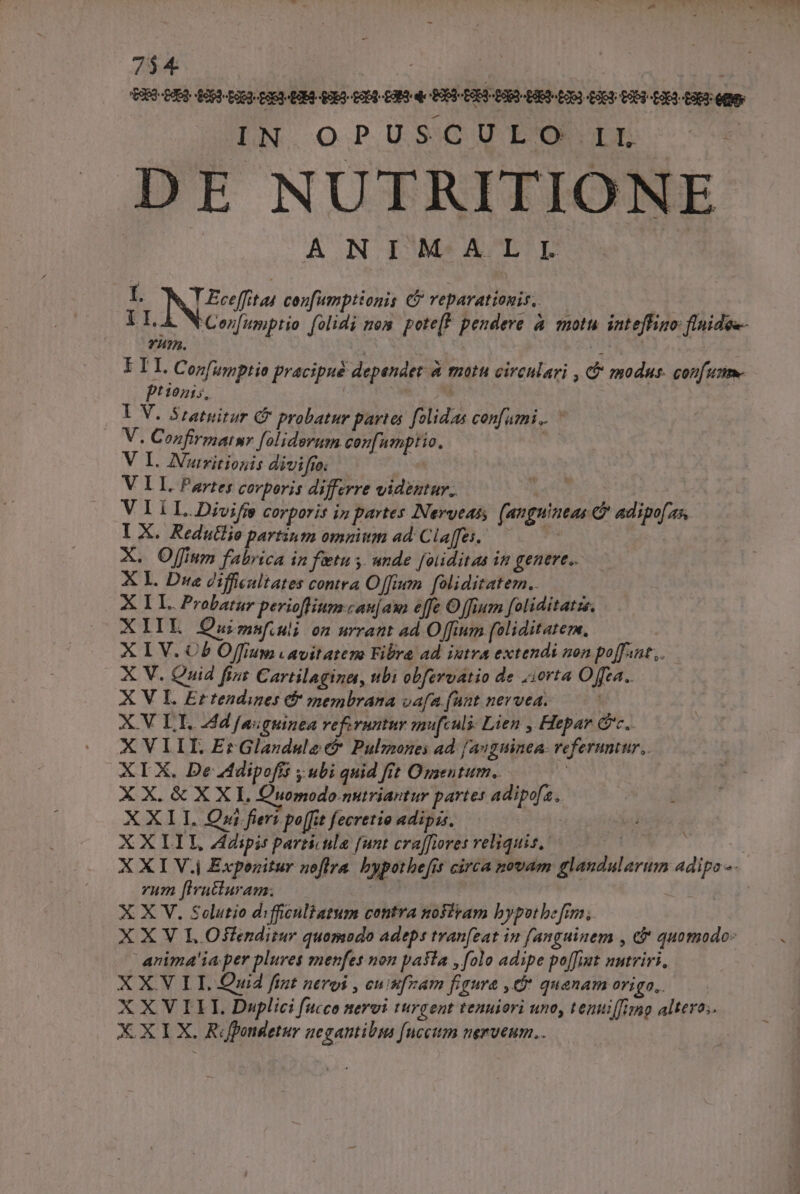 754
IN OPUSCULO II.
DE NUTRITIONE
ANIMALI.
I. NEceſſitas conſumptionis & reparationis.
II. Conſumptio ſolidi non poteſt pendere à motu inteſtino fluido-
rum.
III. Conſumptio pracipuè dependet à motu circulari, & modus conſum-
ptionis.
IV. Statuitur & probatur partes ſolidas conſumi.
V. Confirmatur ſolidorum conſumptio.
VI. Nutritionis diviſio.
VII. Partes corporis differre videntur.
VIII. Diviſio corporis in partes Nerveas, ſanguineas & adipoſas.
IX. Reductio partium omnium ad Claſſes.
X. Oſſium fabrica in fœtu; unde ſoliditas in genere.
XI. Duæ difficultates contra Oſſium ſoliditatem.
XII. Probatur perioſtium cauſam eſſe Oſſium ſoliditatis.
XIII. Qui muſculi con currant ad Oſſium ſoliditatem.
XIV. Ob Oſſium cavitatem Fibræ ad intra extendi non poſſunt.
XV. Quid ſint Cartilagines, ubi obſervatio de Aorta Oſſea.
XVI. Et tendines & membrana vaſa ſunt nervea.
XVII. Ad ſanguinea referuntur muſculi Lien, Hepar &c.
XVIII. Et Glandulæ & Pulmones ad ſanguinea referuntur.
XIX. De Adipoſis; ubi quid ſit Omentum.
XX. & XXI. Quomodo nutriantur partes adipoſæ.
XXII. Qui fieri poſſit ſecretio adipis.
XXIII. Adipis particulæ ſunt craſſiores reliquis.
XXIV. Exponitur noſtra hypotheſis circa novam glandularum adipo-
rum ſtructuram.
XXV. Solutio difficultatum contra noſtram hypotheſim.
XXVI. Oſtenditur quomodo adeps tranſeat in ſanguinem, & quomodo
animalia per plures menſes non paſta, ſolo adipe poſſint nutriri.
XXVII. Quid ſint nervi, cujuſnam figuræ, & quænam origo.
XXVIII. Duplici ſucco nervi turgent tenuiori uno, tenuiſſimo altero.
XXIX. Reſpondetur negantibus ſuccum nerveum.